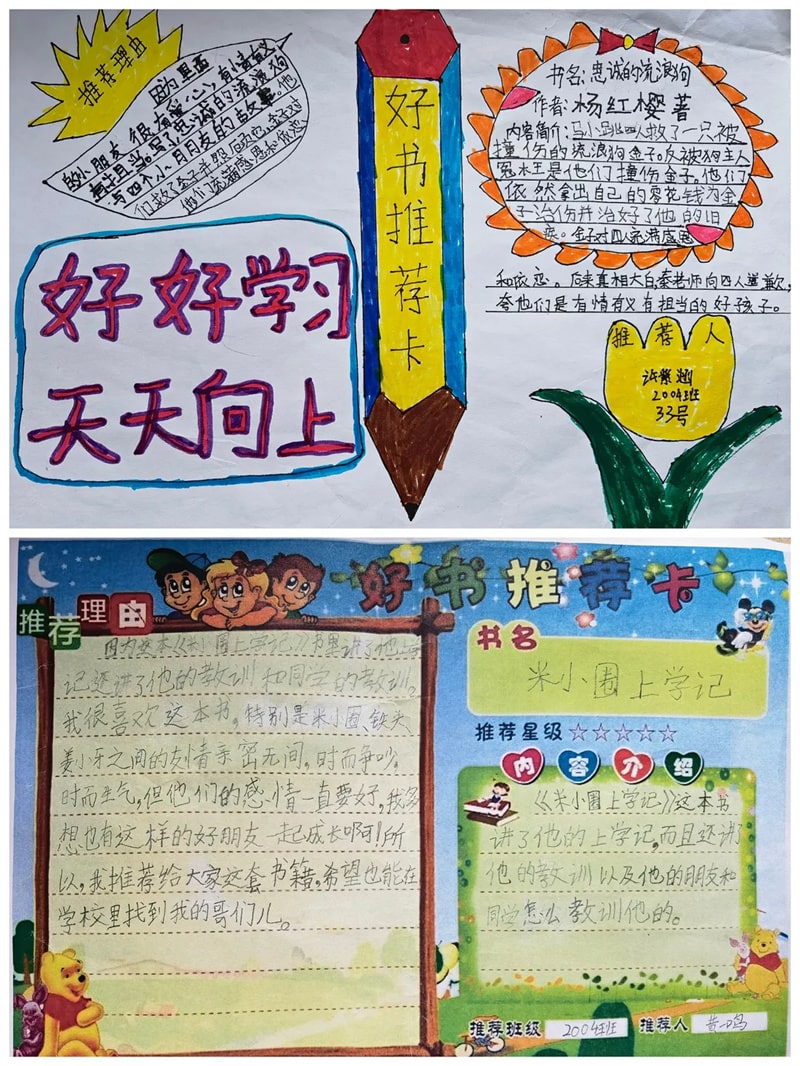 推荐理由
因为里面
的小朋友很有爱心,有情有义
有担当。写《忠诚的流浪狗
与四个小月朋友的故事。他
好书推荐卡
书名:忠诚的流浪狗
作者:杨红樱著
内容简介:马小跳四人救了一只被
撞伤的流浪狗金子。反被狗主人
冤王是他们撞伤金子。他们
依然拿出自己的零花钱为金
子治伤并治好了他的旧
疾。金子对四人充满感恩
和依恋。后来真相大白秦老师向四人道歉,
夸他们是有情有义有担当的好孩子。
好好学习
天天向上
推荐人
2004班
33号
好书推荐卡
推荐理由
因为这本《米小圈上学记》书里讲了他上学
记还讲了他的教训和同学的教训。
我很喜欢这本书,特别是米小圈、铁头、
姜小牙之间的友情亲密无间。时而争吵,
时而生气,但他们的感情一直要好,我多
想也有这样的好朋友一起成长啊!所
以,我推荐给大家这套书籍,希望也能在
学校里找到我的哥们儿。
书名
米小圈上学记
推荐星级☆☆☆☆☆
内容介绍
《米小圈上学记》这本书
讲了他的上学记,而且还讲
他的教训以及他的朋友和
同学怎么教训他的。
推荐班级 2004班 推荐人